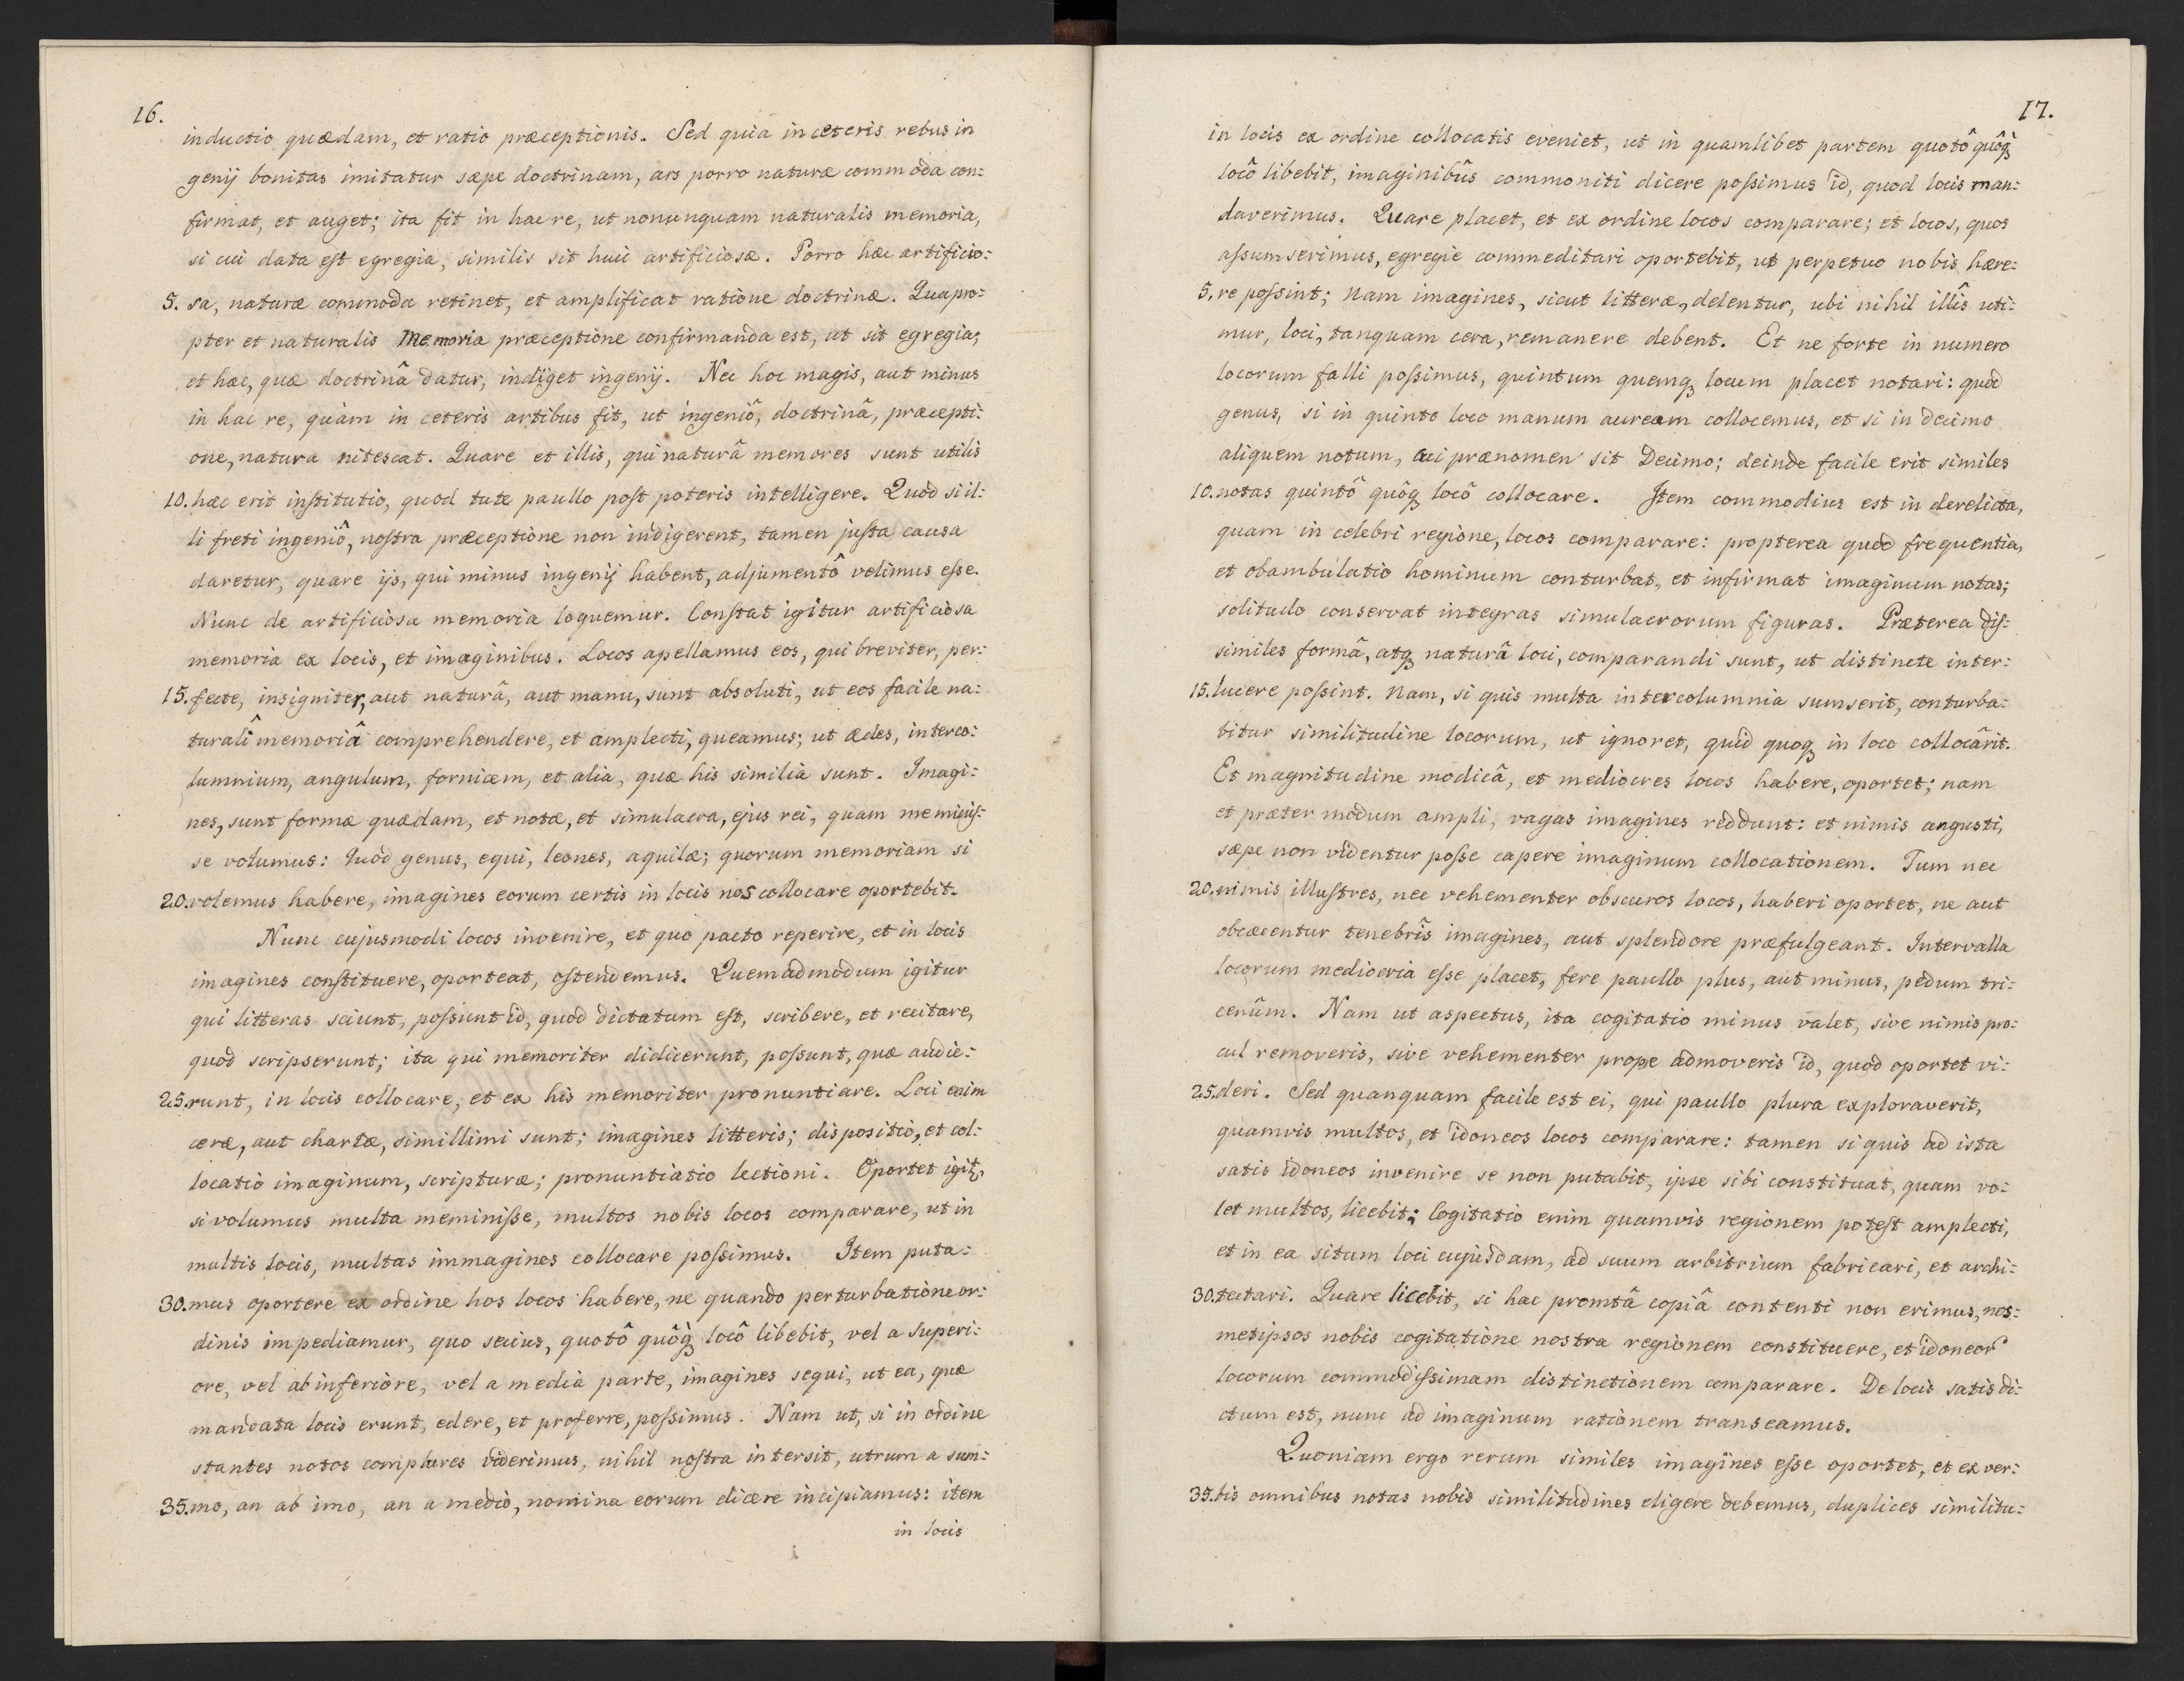 16.
inductio quædam, et ratio præceptionis. Sed quia in ceteris rebus in
genij bonitas imitatur sæpe doctrinam, ars porro naturæ commoda con:
firmat, et auget; ita fit in hac re, ut nonunquam naturalis memoria,
si cui data est egregia, similis sit huic artificiosæ. Porro hæc artificio:
5. sa, naturæ commoda retinet, et amplificat ratione doctrinæ. Quapro:
pter et naturalis memoria præceptione confirmanda est, ut sit egregia;
et hæc, quæ doctrinâ datur, indiget ingenij. Nec hoc magis, aut minus
in hac re, quàm in ceteris artibus fit, ut ingeniô, doctrinâ, præcepti:
one, natura nitescat. Quare et illis, qui naturâ memores sunt utilis
10. hæc erit institutio, quod tute paullo post poteris intelligere. Quod si il:
li freti ingeniô, nostra præceptione non indigerent, tamen justa causa
daretur, quare ijs, qui minus ingenij habent, adjumentô velimus esse.
Nunc de artificiosa memoria loquemur. Constat igitur artificiosa
memoria ex locis, et imaginibus. Locos apellamus eos, qui breviter, per:
15. fecte, insigniter, aut naturâ, aut manu, sunt absoluti, ut eos facile na:
turalî memoriâ comprehendere, et amplecti, queamus; ut ædes, interco:
lumnium, angulum, fornicem, et alia, quæ his similia sunt. Imagi:
nes, sunt formæ quædam, et notæ, et simulacra, ejus rei, quam meminis:
se volumus: Quod genus, equi, leones, aquilæ; quorum memoriam si
20. volemus habere, imagines eorum certis in locis nos collocare oportebit.
Nunc cujusmodi locos invenire, et quo pacto reperire, et in locis
imagines constituere, oporteat, ostendemus. Quemadmodum igitur
qui litteras sciunt, possunt id, quod dictatum est, scribere, et recitare,
quod scripserunt; ita qui memoriter didicerunt, possunt, quæ audie:
25. runt, in locis collocare, et ex his memoriter pronuntiare. Loci enim
ceræ, aut chartæ, simillimi sunt; imagines litteris; dispositio, et col:
locatio imaginum, scripturæ; pronuntiatio lectioni. Oportet igit,
si volumus multa meminisse, multos nobis locos comparare, ut in
multis locis, multas immagines collocare possimus. Item puta:
30. mus oportere ex ordine hos locos habere, ne quando perturbatione or:
dinis impediamur, quo secius, quotô quôq locô libebit, vel a superi:
ore, vel ab inferiore, vel a mediâ parte, imagines sequi, ut ea, quæ
mandata locis erunt, edere, et proferre, possimus. Nam ut, si in ordine
stantes notos complures viderimus, nihil nostra intersit, utrum a sum:
35. mo, an ab imo, an a medio, nomina eorum dicere incipiamus: item
in locis
17.
in locis ex ordine collocatis eveniet, ut in quamlibet partem quotô quôq
locô libebit, imaginibûs commoniti dicere possimus id, quod locis man:
daverimus. Quare placet, et ex ordine locos comparare; et locos, quos
assumserimus, egregie commeditari oportebit, ut perpetuo nobis hære:
5. re possint; nam imagines, sicut litteræ, delentur, ubi nihil illîs uti:
mur, loci, tanquam cera, remanere debent. Et ne forte in numero
locorum falli possimus, quintum quemq locum placet notari: quod
genus, si in quinto loco manum auream collocemus, et si in decimo
aliquem notum, cui prænomen sit Decimo; deinde facile erit similes
10. notas quintô quôq locô collocare. Item commodius est in derelicta,
quam in celebri regione, locos comparare: propterea quod frequentia,
et obambulatio hominum conturbat, et infirmat imaginum notas;
solitudo conservat integras simulacrorum figuras. Præterea dis:
similes formâ, atq naturâ loci, comparandi sunt, ut distincte inter:
15. lucere possint. Nam, si quis multa intercolumnia sumserit, conturba:
bitur similitudine locorum, ut ignoret, quid quoq in loco collocârit.
Et magnitudine modicâ, et mediocres locos habere, oportet; nam
et præter modum ampli, vagas imagines reddunt: et nimis angusti,
sæpe non videntur posse capere imaginum collocationem. Tum nec
20. nimis illustres, nec vehementer obscuros locos, haberi oportet, ne aut
obcæcentur tenebrîs imagines, aut splendore præfulgeant. Intervalla
locorum mediocria esse placet, fere paullo plus, aut minus, pedum tri:
cenûm. Nam ut aspectus, ita cogitatio minus valet, sive nimis pro:
cul removeris, sive vehementer prope admoveris id, quod oportet vi:
25. deri. Sed quanquam facile est ei, qui paullo plura exploraverit,
quamvis multos, et idoneos locos comparare: tamen si quis ad ista
satis idoneos invenire se non putabit, ipse sibi constituat, quam vo:
let multos, licebit; Cogitatio enim quamvis regionem potest amplecti,
et in ea situm loci cujusdam, ad suum arbitrium fabricari, et archi:
30. tectari. Quare licebit, si hac promtâ copiâ contenti non erimus, nos:
metipsos nobis cogitatione nostra regionem constituere, et idoneor
locorum commodissimam distinctionem comparare. De locis satis di:
ctum est, nunc ad imaginum rationem transeamus.
Quoniam ergo rerum similes imagines esse oportet, et ex ver:
35. bis omnibus notas nobis similitudines eligere debemus, duplices similitu: